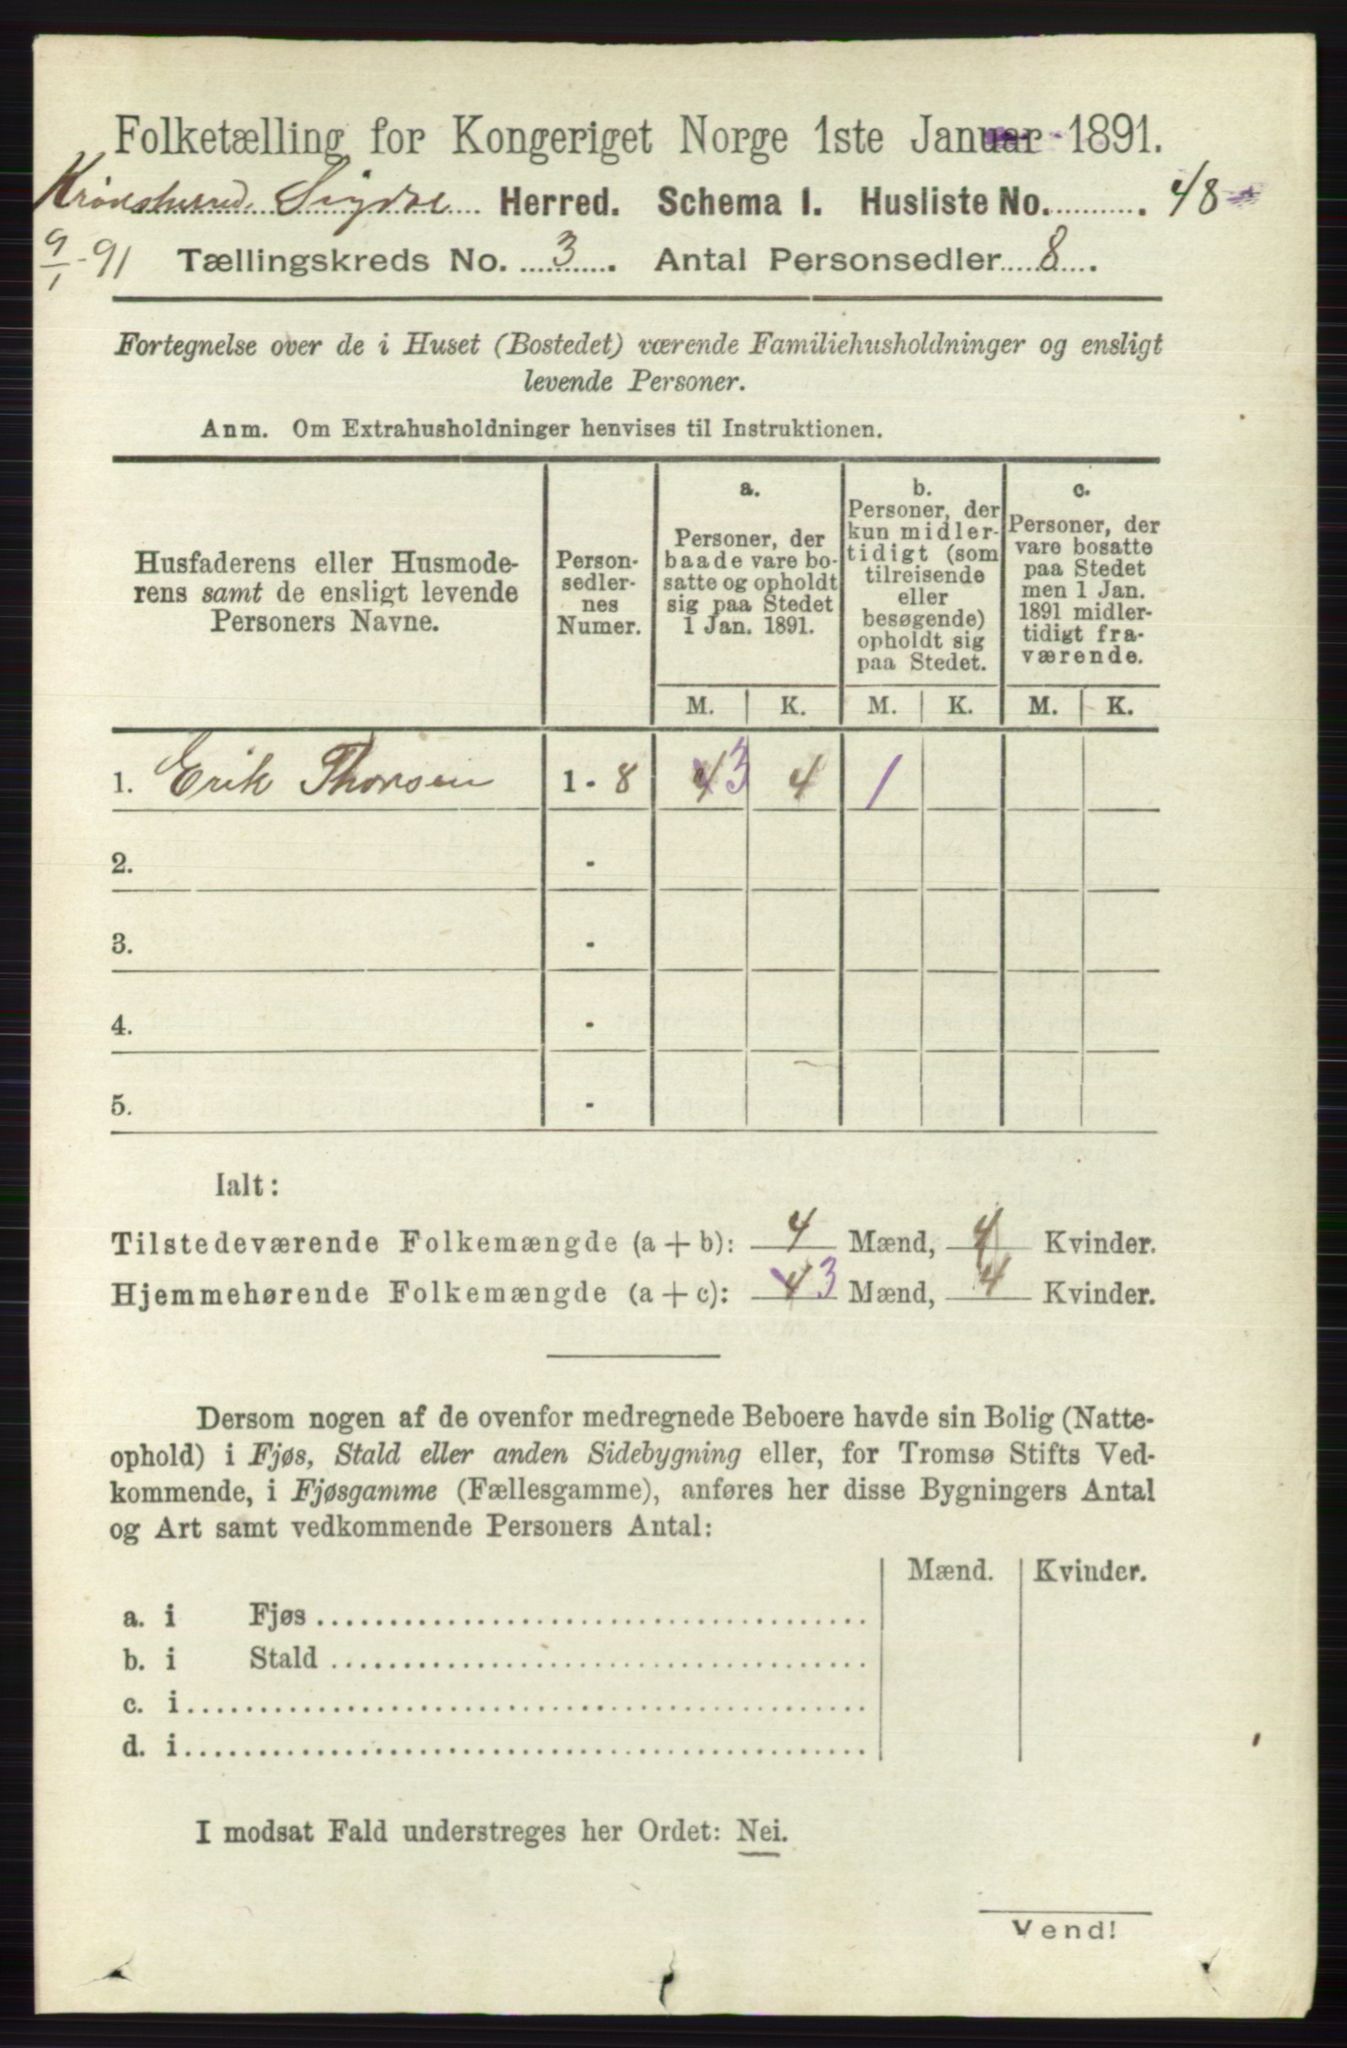 Folketælling for Kongeriget Norge 1ste Januar 1891.
Sigdal Herred. Schema 1. Husliste No. 48
9/1-91 Tællingskreds No. 3. Antal Personsedler 8.
Fortegnelse over de i Huset (Bostedet) værende Familiehusholdninger og ensligt
levende Personer.
Anm. Om Extrahusholdninger henvises til Instruktionen.
Husfaderens eller Husmode-
rens samt de ensligt levende
Personers Navne.
Person-
sedler-
nes
Numer.
a.
Personer, der
baade vare bo-
satte og opholdt
sig paa Stedet
1 Jan. 1891.
b.
Personer, der
kun midler-
tidigt (som
tilreisende
eller
besøgende)
opholdt sig
paa Stedet.
c.
Personer, der
vare bosatte
paa Stedet
men 1 Jan.
1891 midler-
tidigt fra-
værende.
M. K. M. K. M. K.
1. Erik Thorsen 1-8 4 3 4 1
2. -
3. -
4. -
5. -
Ialt:
Tilstedeværende Folkemængde (a+b): 4 Mænd, 4 Kvinder.
Hjemmehørende Folkemængde (a+c): 4 3 Mænd, 4 Kvinder.
Dersom nogen af de ovenfor medregnede Beboere havde sin Bolig (Natte-
ophold) i Fjøs, Stald eller anden Sidebygning eller, for Tromsø Stifts Ved-
kommende, i Fjøsgamme (Fællesgamme), anføres her disse Bygningers Antal
og Art samt vedkommende Personers Antal:
Mænd. Kvinder.
a. i Fjøs
b. i Stald
c. i
d. i
I modsat Fald understreges her Ordet: Nei.
Vend!